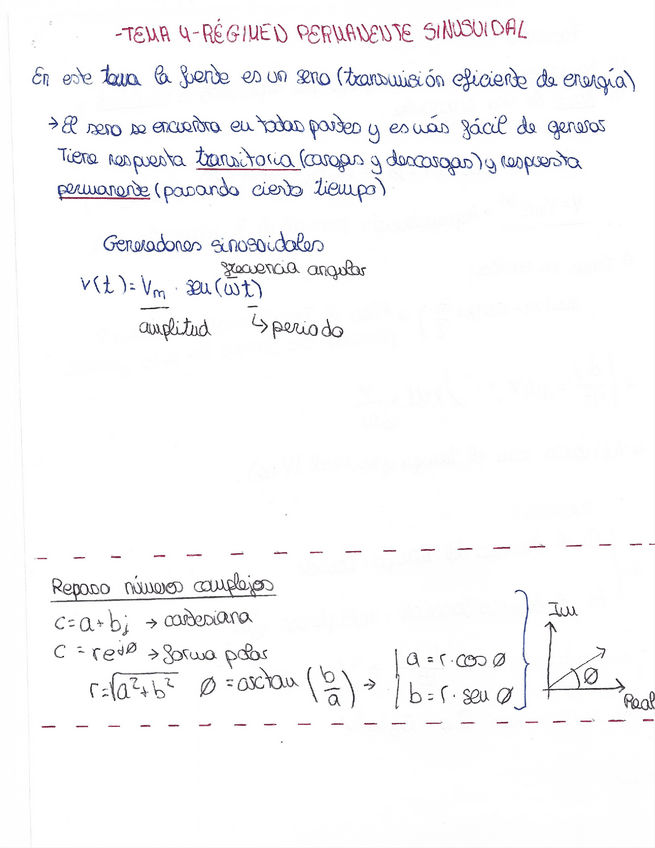 -TEMA 4-RÉGIMEN PERMANENTE SINUSOIDAL
En este tema la fuente es un seno (transmisión eficiente de energía)
→ El seno se encuentra en todas partes y es más fácil de generar
Tiene respuesta transitoria (cargas y descargas) y respuesta
permanente (pasando cierto tiempo)
Generadores sinusoidales
frecuencia angular
v(t) = Vm · sen(ωt)
amplitud ↳ periodo
Repaso números complejos
c = a + bj → cartesiana
c = re^jø → forma polar
r = √a²+b² ø = arctan (b/a) →
a = r · cos ø
b = r · sen ø
Im
ø
Real